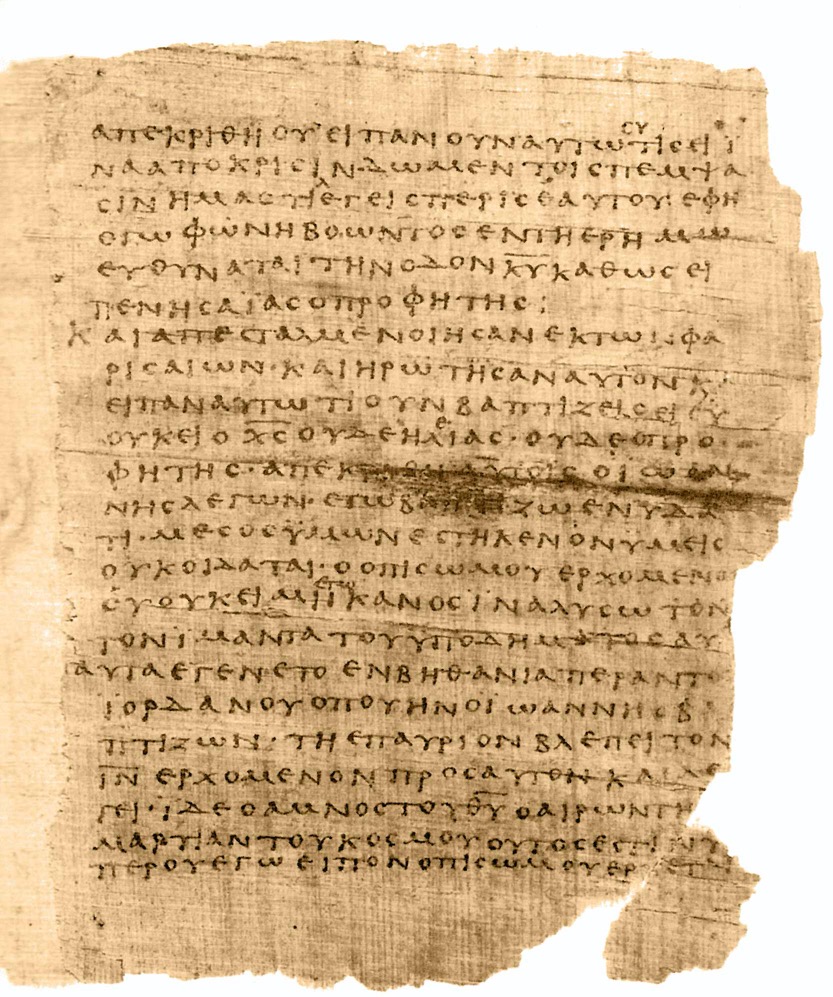 ΑΠΕΚΡΙΘΗΟΥ·ΕΙΠΑΝΟΥΝΑΥΤΩϹΥΤΙϹΕΙΪ
ΝΑΑΠΟΚΡΙϹΙΝΔΩΜΕΝΤΟΙϹΠΕΜΨΑ
ϹΙΝΗΜΑϹΤΙΛΕΓΕΙϹΠΕΡΙϹΕΑΥΤΟΥ·ΕΦΗ
ΕΓΩΦΩΝΗΒΟΩΝΤΟϹΕΝΤΗΕΡΗΜΩ
ΕΥΘΥΝΑΤΑΙΤΗΝΟΔΟΝΚ̅Υ̅ΚΑΘΩϹΕΙ
ΠΕΝΗϹΑΪΑϹΟΠΡΟΦΗΤΗϹ:
ΚΑΙΑΠΕϹΤΑΛΜΕΝΟΙΗϹΑΝΕΚΤΩΝΦΑ
ΡΙϹΑΙΩΝ·ΚΑΙΗΡΩΤΗϹΑΝΑΥΤΟΝΚ
ΕΙΠΑΝΑΥΤΩΤΙΟΥΝΒΑΠΤΙΖΕΙϹΕΙϹΥ
ΟΥΚΕΙΟΧ̅Ϲ̅ΟΥΔΕΗΛΕΙΑϹ·ΟΥΔΕΟΠΡΟ
ΦΗΤΗϹ·ΑΠΕΚΡΙΘΗΑΥΤΟΙϹΟΙΩΑΝ
ΝΗϹΛΕΓΩΝ·ΕΓΩΒΑΠΤΙΖΩΕΝΥΔΑ
ΤΙ·ΜΕϹΟϹΫΜΩΝΕϹΤΗΚΕΝΟΝΥΜΕΙϹ
ΟΥΚΟΙΔΑΤΑΙ·ΟΟΠΙϹΩΜΟΥΕΡΧΟΜΕΝΟ
ΟΥΟΥΚΕΙΜΙΕΓΩΪΚΑΝΟϹΙΝΑΛΥϹΩΤΟΝ
ΤΟΝΙΜΑΝΤΑΤΟΥΥΠΟΔΗΜΑΤΟϹΑΥ
ΤΑΥΤΑΕΓΕΝΕΤΟΕΝΒΗΘΑΝΙΑΠΕΡΑΝΤΟ
ΪΟΡΔΑΝΟΥΟΠΟΥΗΝΟΙΩΑΝΝΗϹΒΑ
ΠΤΙΖΩΝ·ΤΗΕΠΑΥΡΙΟΝΒΛΕΠΕΙΤΟΝ
Ι̅Ν̅ΕΡΧΟΜΕΝΟΝΠΡΟϹΑΥΤΟΝΚΑΙΛΕ
ΓΕΙ·ΪΔΕΟΑΜΝΟϹΤΟΥΘ̅Υ̅ΟΑΙΡΩΝΤΗ
ΑΜΑΡΤΙΑΝΤΟΥΚΟϹΜΟΥΟΥΤΟϹΕϹΤΙΝΥ
ΠΕΡΟΥΕΓΩΕΙΠΟΝΟΠΙϹΩΜΟΥΕΡΧΕΤΑΙ